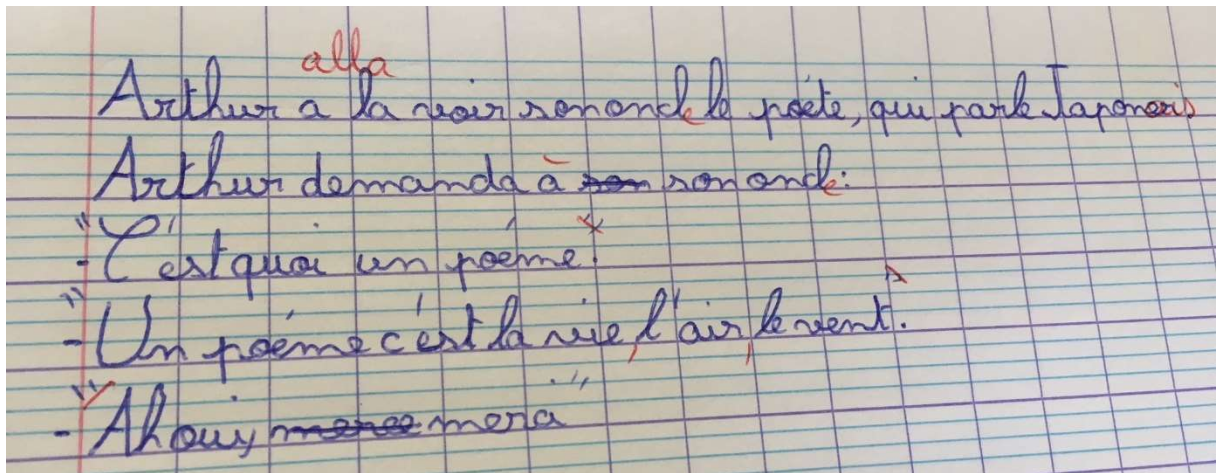 alla
Arthur a la voir son oncle le poéte, qui parle Japonais
Arthur demanda à son oncle:
"- C'est quoi un poéme?
"- Un poéme c'est la vie, l'air, le vent.
"- Ah ouiy mera"